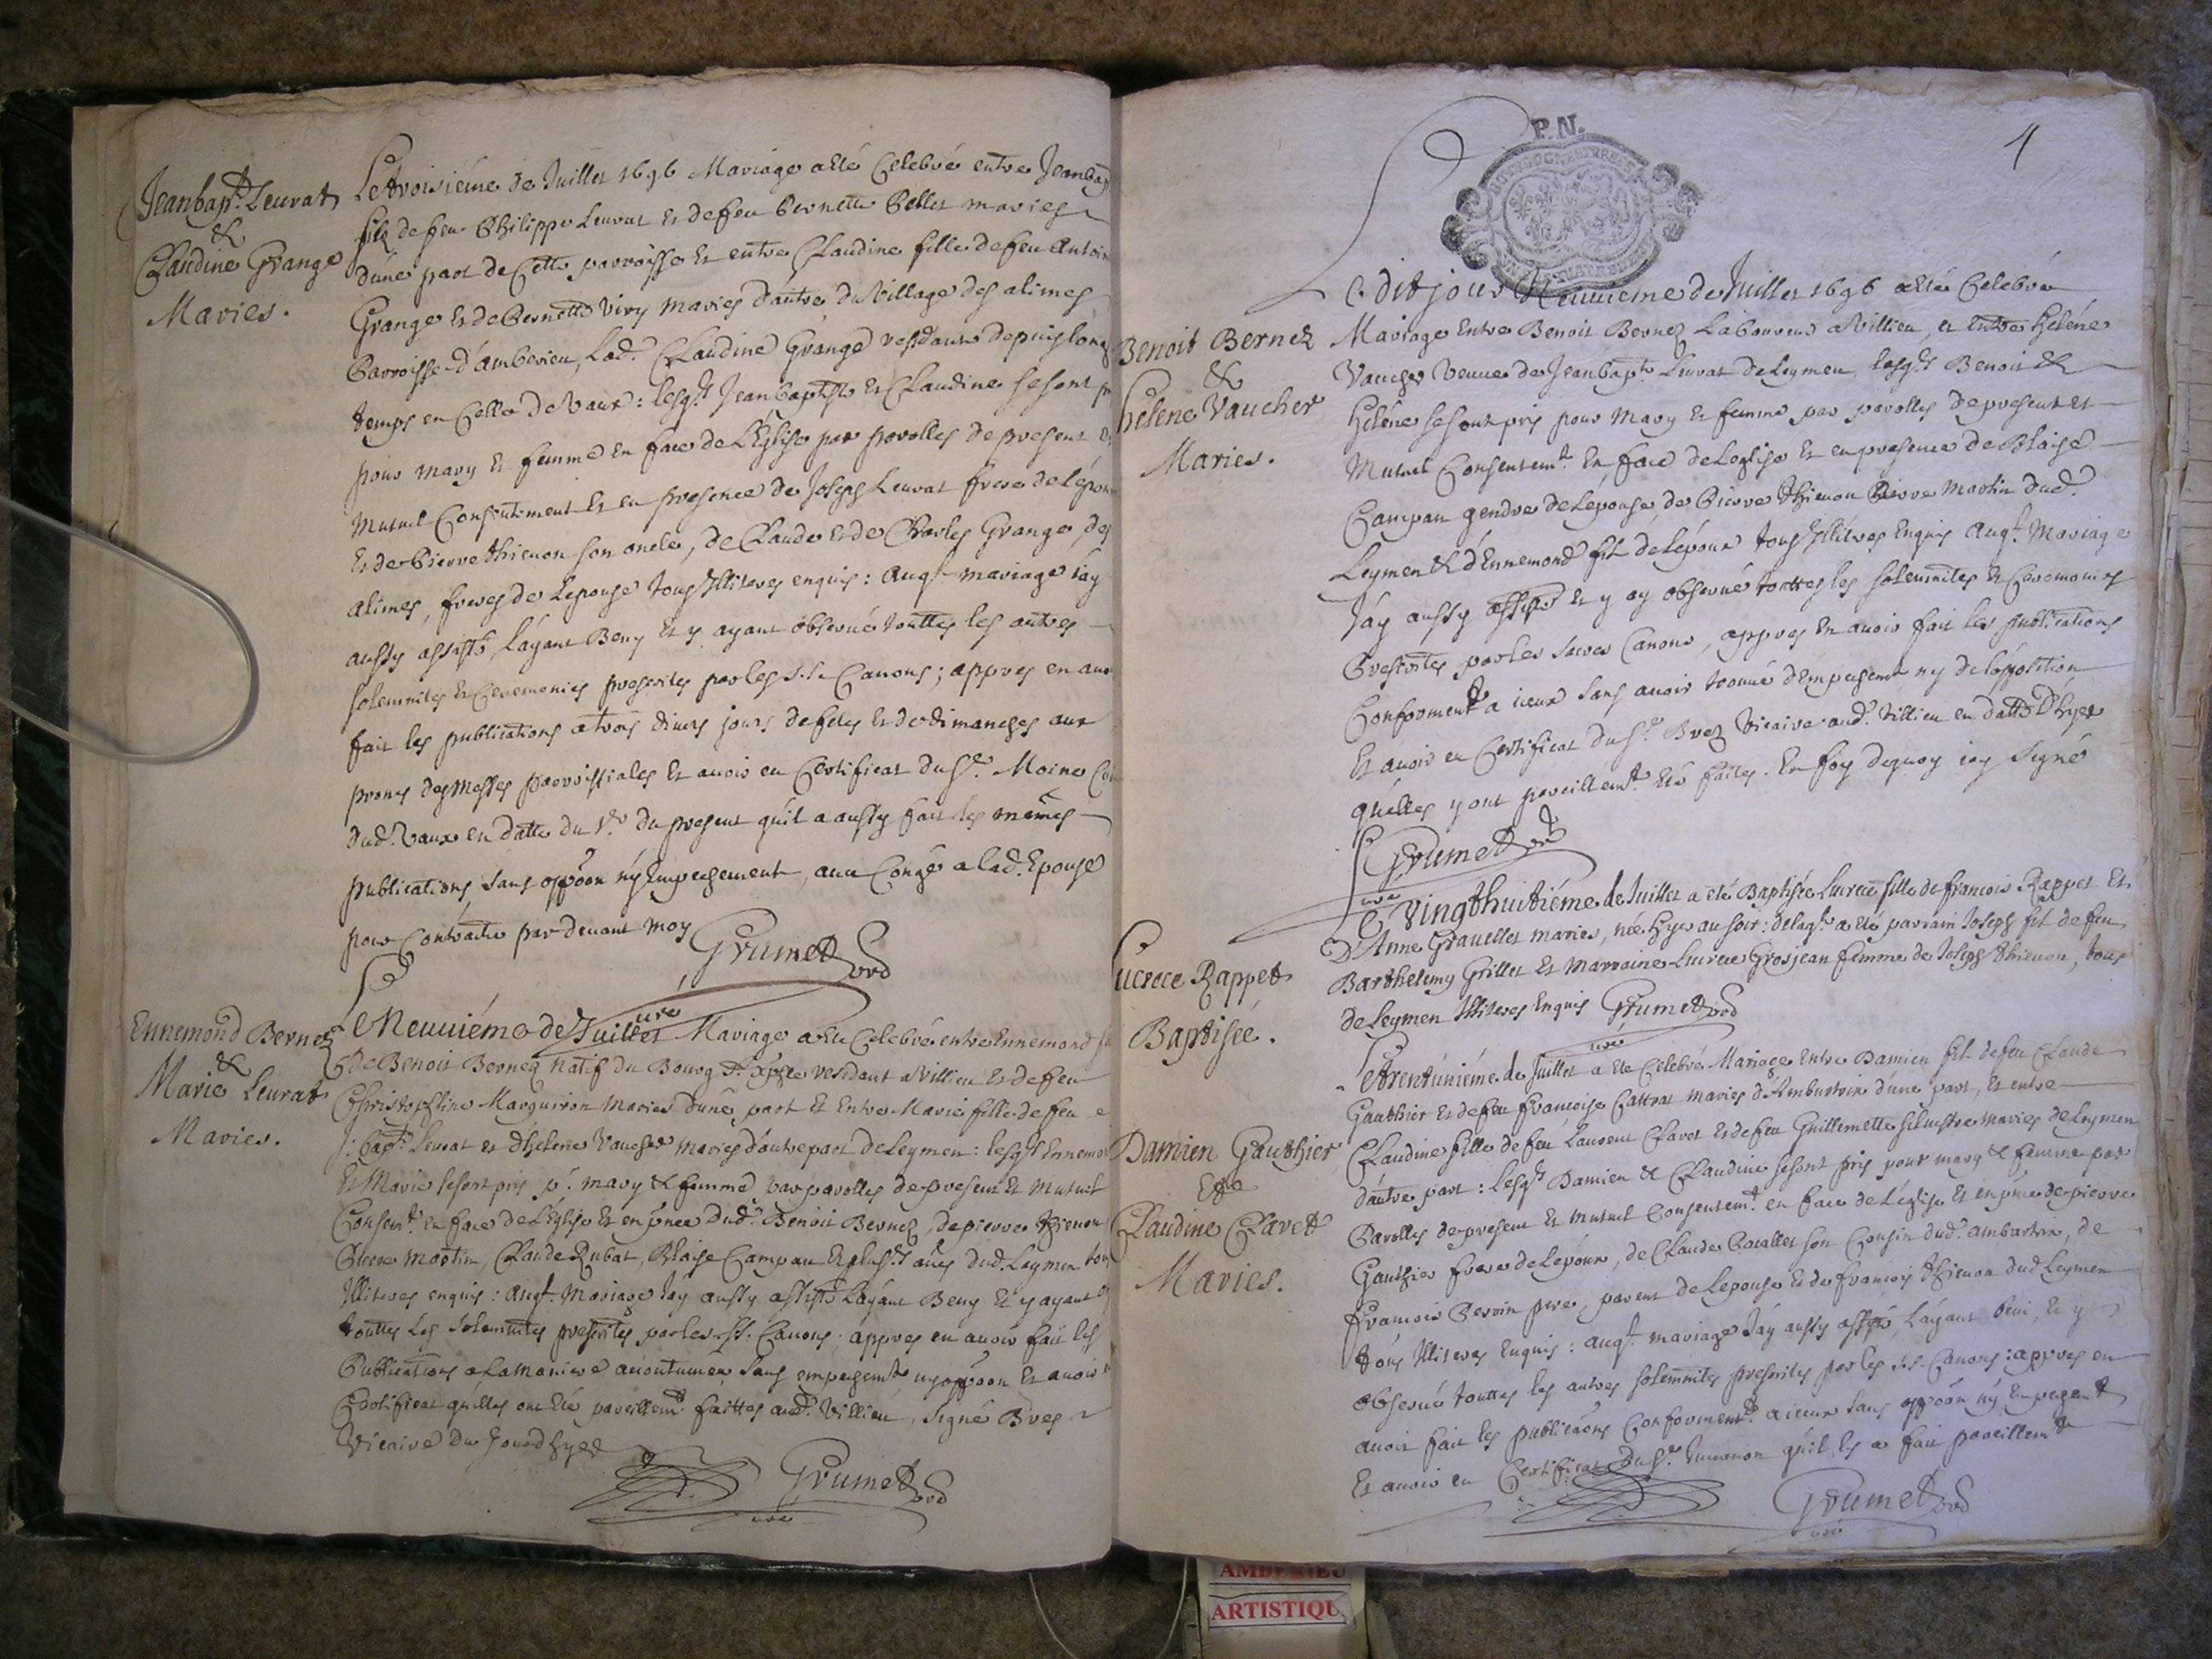 Jeanbapt. Leurat
&
Claudine Grange
Mariés.
Le troisiéme de Juillet 1696 Mariage a été Celebré entre Jeanbap
filz de feu Philippe Leurat et de feu Pernette Bellet mariés
d'une part de Cette parroisse et entre Claudine fille de feu Antoin
Grange et de Pernette Viry mariés d'autre du Village des alimes
Parroisse d'amberieu, lad. Claudine Grange residante depuis long
temps en Celle de Vaux : lesq.ts Jeanbaptiste et Claudine se sont
pour mary et femme en face de L'Eglise par parolles de present et
Mutuel Consentement et en presence de Joseph Leurat frere de l'epoux
et de Pierre thienon son oncle, de Claude et de Charles Grange, des
alimes, freres de l'epouse tous Illiteres enquis : auq.l mariage iay
aussy assisté, l'ayant Beny et y ayant observé touttes les autres
solemnités et Ceremonies prescrites par les s.s. Canons ; appres en auo
fait les publications a trois divers jours de festes et de dimanches aux
prones des Messes parroissiales et avoir eu Certificat du S.r Moine
dud. Vaux en datte du 1.er du present qu'il a aussy fait les mêmes
publications sans oppoon ny Empechement, avec Congé a lad. Epouse
pour Contracter par devant moy
Grumet
curé
Ennemond Bernez
&
Marie Leurat
Mariés.
Le Neuviéme de Juillet Mariage a été Celebré entre Ennemond
de Benoit Bernez natif du Bourg St. residant a Villieu et de feu
Christophline Marguiron Mariés d'une part et Entre Marie fille de feu
J. Bapt. Leurat et d'helene Vaucher mariés d'autre part de Leymen : lesq.ts Ennemon
et Marie se sont pris p.r mary & femme par parolles de present et Mutuel
Consent.t en face de L'Eglise et en pnce dud. Benoit Bernez, de pierre thienon
Pierre Martin, Claude Rubat, Blaise Campan et plus.rs aues dud. Leymen tous
Illiteres enquis : auq.l Mariage Jay aussy assisté L'ayant Beny et y ayant
touttes les solemnités prescrites par les SS. Canons ; appres en avoir fait les
Publications a la maniere accoutumée sans empechem.t ny oppoon et avoir
Certificat qu'elles ont été pareillem.t faittes aud. Villieu, signé Bres
Vicaire du jourdhyer
Grumet
curé
1
P.N.
Benoit Bernez
&
helene Vaucher
Mariés.
Le dit jour Neuvieme de Juillet 1696 a été Celebré
Mariage Entre Benoit Bernez Laboureur a Villieu, et Entre helene
Vaucher Veuve de Jeanbapt. Leurat de Leymen, lesq.ts Benoit &
helene se sont pris pour Mary et femme par parolles de present et
Mutuel Consentem.t En face de Leglise et en presence de Blaise
Campan gendre de L'epouse, de Pierre thienon Pierre Martin dud.
Leymen & d'Ennemond fil de L'epoux tous Illiteres Enquis Auq.l Mariage
J'ay aussy assisté et y ay observé touttes les solemnités et Ceremonies
Prescrites par les sacres Canons, appres En avoir fait les publications
Conforment.t a iceux sans avoir trouvé d'Empechem.t ny de l'opposition
et avoir eu Certificat du S.r Brez Vicaire aud. Villieu en datte D'hyer
qu'elles y ont pareillem.t été faites. En foy dequoy iay signé
Grumet
curé
Lucrece Rappet
Baptisée.
Le Vingthuitiéme de Juillet a été Baptisée Lucrece fille de francois Rappet Et
D'Anne Gravellet mariés, née hyer au soir : de laq.le a été parrain Joseph fil de feu
Barthelemy Grillet Et Marraine Lucrece Grosjean femme de Joseph thienon, tous
de Leymen Illiteres Enquis Grumet
curé
Damien Gauthier
Et
Claudine Clavet
Mariés.
Le trentuniéme de Juillet a été Celebré Mariage Entre Damien fil de feu Claude
Gauthier et de feu francoise Cattrat mariés d'Ambutrix d'une part, et entre
Claudine fille de feu Laurent Clavet et de feu Guillemette silvestre mariés de Leymen
d'autre part : lesq.ts Damien & Claudine se sont pris pour mary & femme par
Parolles de present et mutuel Consentem.t en face de L'eglise et en pnce de pierre
Gauthier frere de L'epoux, de Claude Cavallet son Cousin dud. ambutrix, de
francois Perrin pere, parent de Lepouse et de francois thienon dud Leymen
tous Illiteres Enquis : auq.l mariage J'ay aussy assisté, L'ayant Beni, et y
observé touttes les autres solemnités prescrites par les s.s. Canons : appres en
avoir fait les publicaons Conforment.t a iceux sans oppoon ny Empechem.t
et avoir eu Certificat du S.r qu'il les a fait pareillem.t
Grumet
curé
AMBERIEU
ARTISTIQU